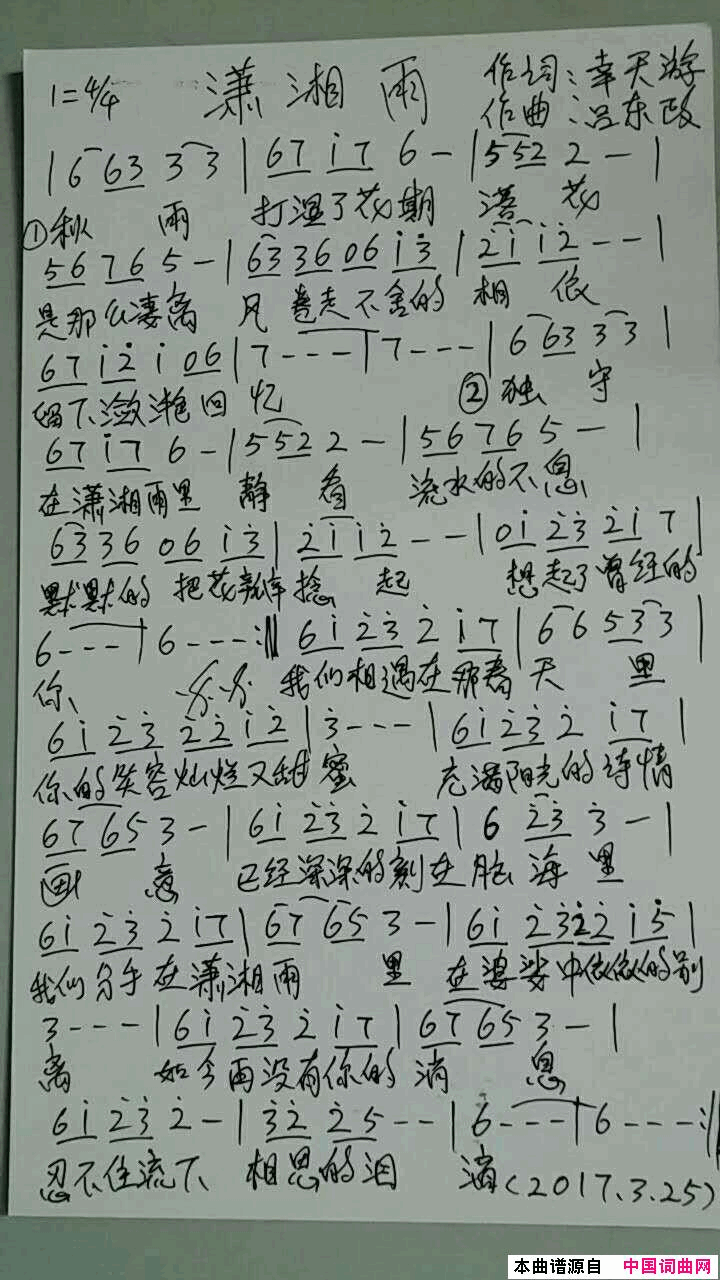 1=4/4 潇湘雨 作词:幸天游
作曲:吕东政
| 6 63 3 3 | 67 i7 6 - | 5 52 2 - |
①秋 雨 打湿了花期 落 花
56 76 5 - | 63 36 06 i3̇ | 2̇i i2̇ - - |
是那么凄离 风 卷走不舍的 相 依
67 i2̇ i 06 | 7 - - - | 7 - - - | 6 63 3 3 |
留下潋滟回 忆 ②独 守
67 i7 6 - | 5 52 2 - | 56 76 5 - |
在潇湘雨里 静 看 流水的不息
63 36 06 i3̇ | 2̇i i2̇ - - | 0i 2̇3̇ 2̇i 7 |
默默的 把花瓣 捻 起 想起了曾经的
6 - - - | 6 - - - :‖ 6i 2̇3̇ 2̇ i7 | 6 6 53 3 |
你 我们相遇在那春天 里
6i 2̇3̇ 2̇2̇ i2̇ | 3̇ - - - | 6i 2̇3̇ 2̇ i7 |
你的笑容灿烂又甜 蜜 充满阳光的诗情
67 65 3 - | 6i 2̇3̇ 2̇ i7 | 6 2̇3̇ 3̇ - |
画 意 已经深深的刻在脑 海 里
6i 2̇3̇ 2̇ i7 | 67 65 3 - | 6i 2̇3̇2̇2̇ i5 |
我们分手在潇湘雨 里 在婆娑中依依的别
3 - - - | 6i 2̇3̇ 2̇ i7 | 67 65 3 - |
离 如今再没有你的 消 息
6i 2̇3̇ 2̇ - | 3̇2̇ 2̇5 - - | 6 - - - | 6 - - - :‖
忍不住流下 相思的泪 滴(2017.3.25)
本曲谱源自 中国词曲网